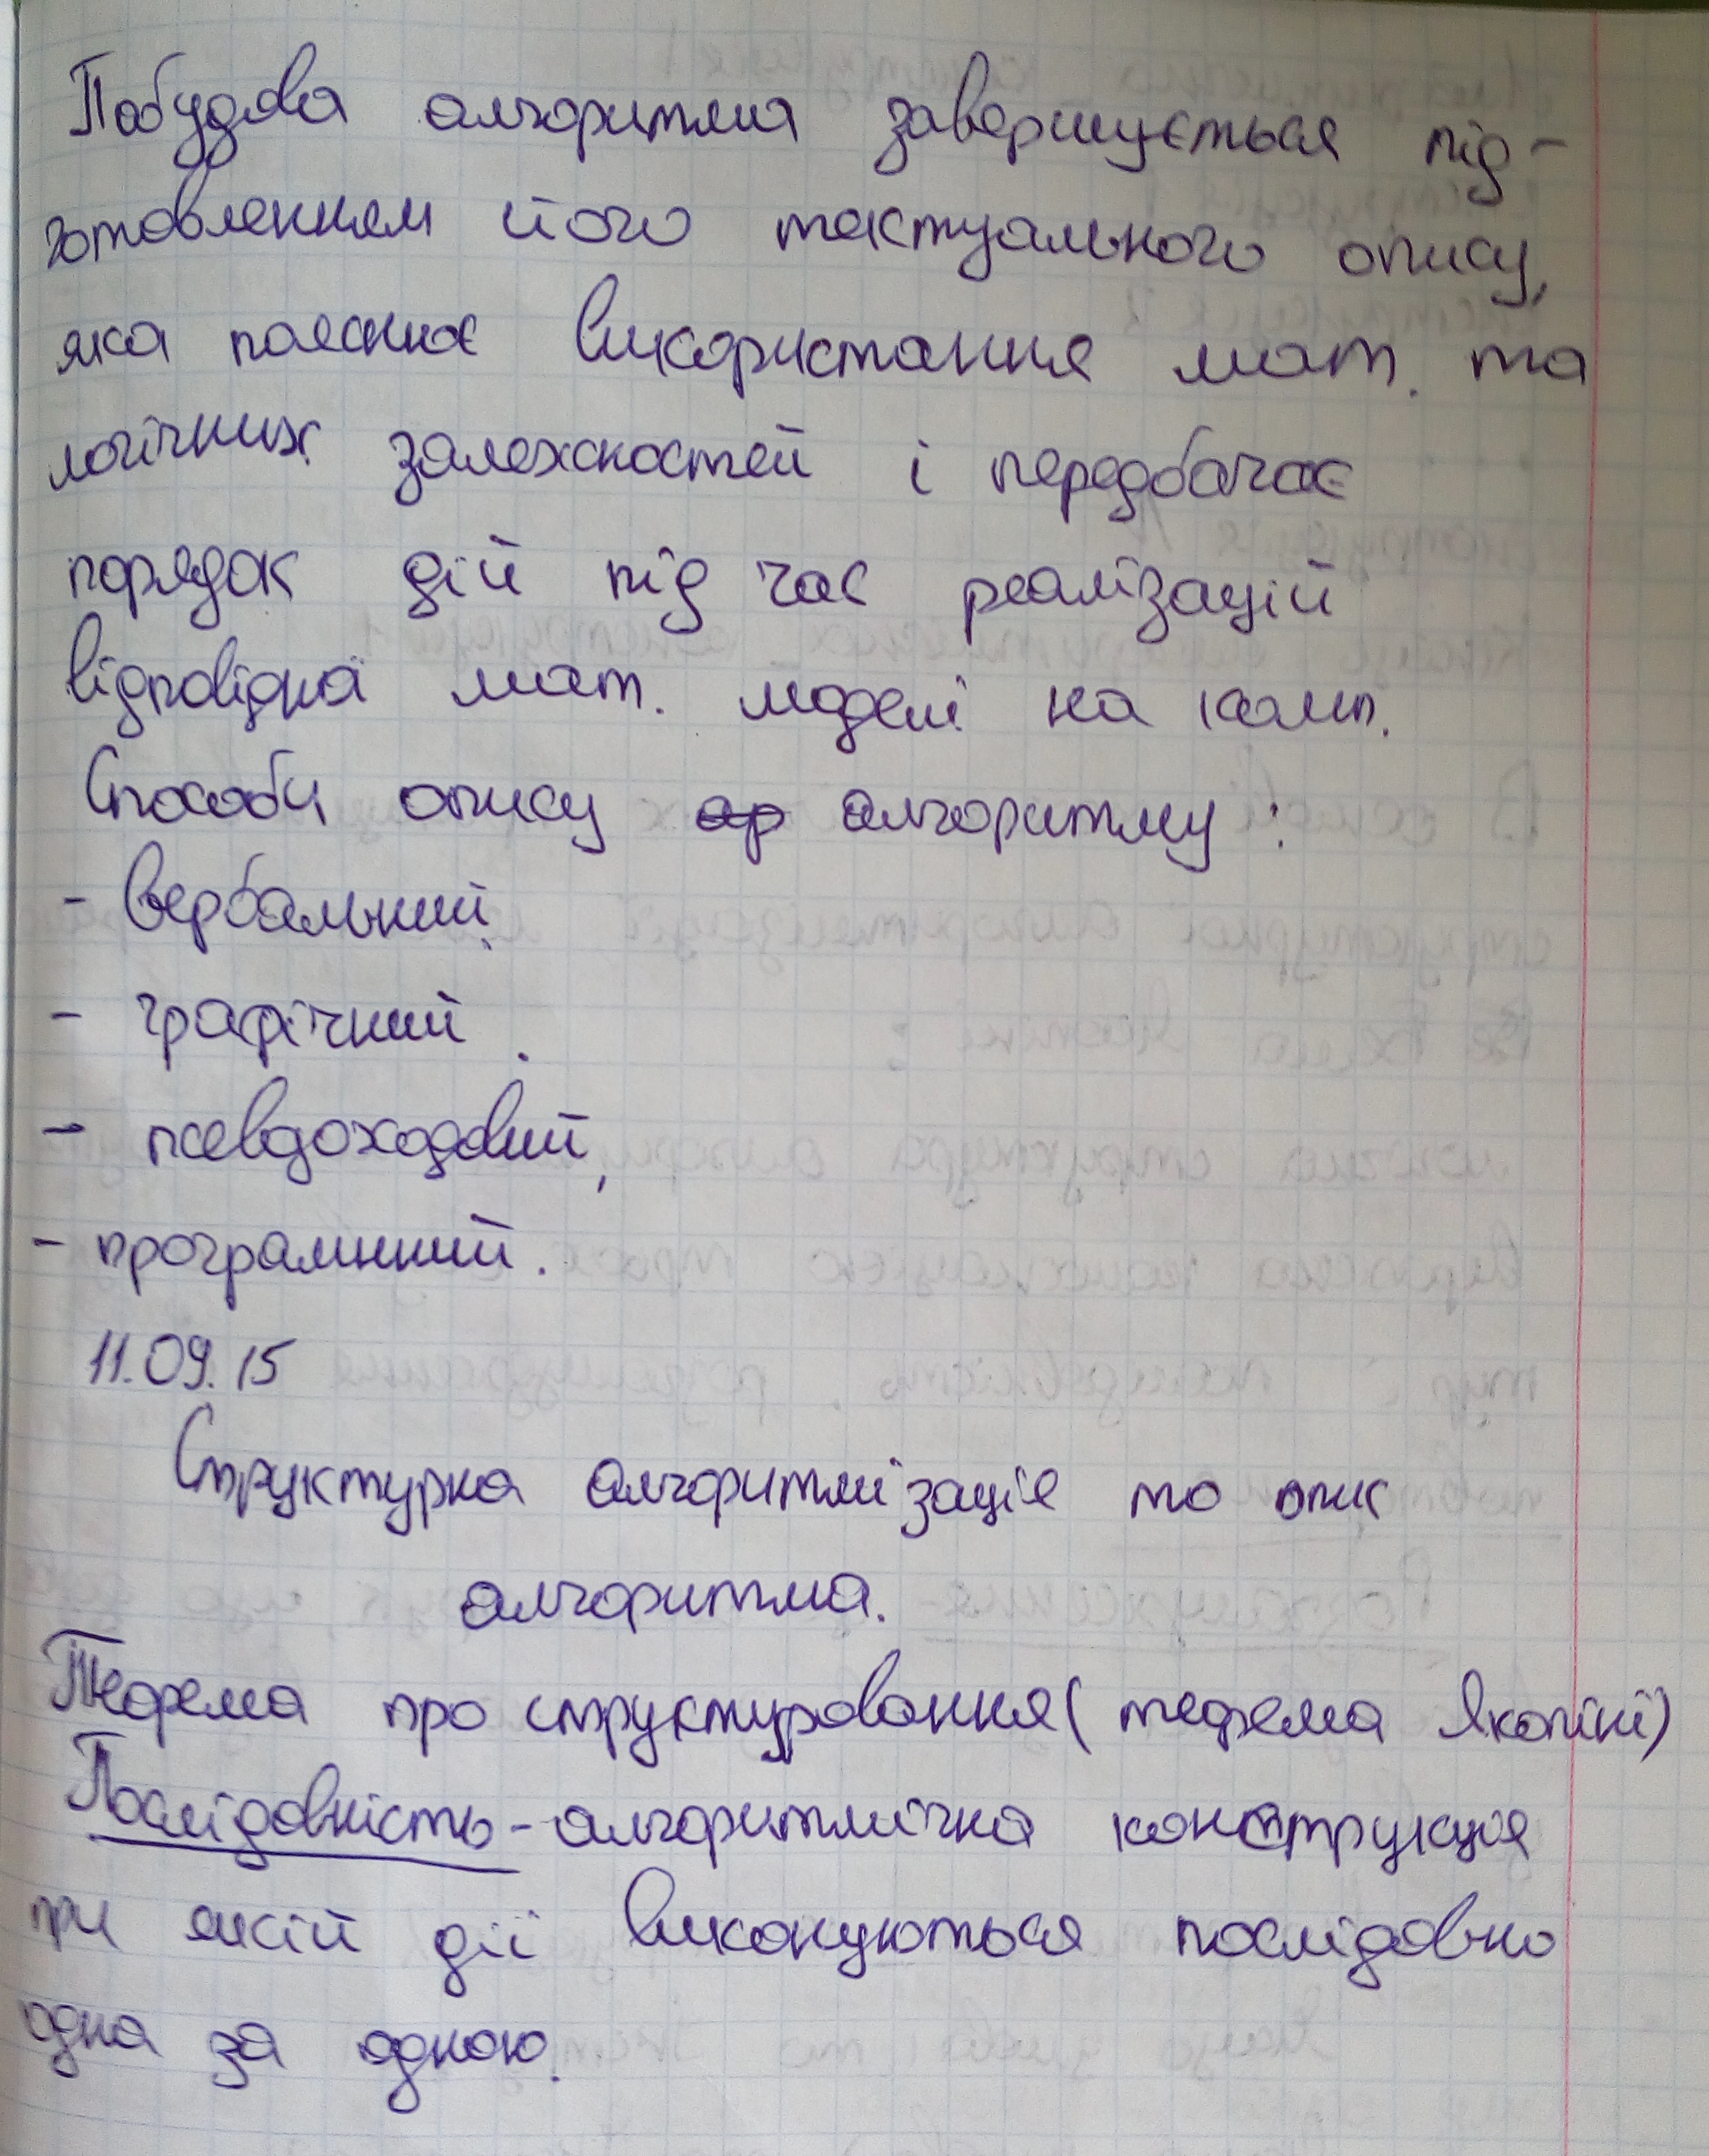 Побудова алгоритма завершується під-
готовленням його текстуального опису,
яка пояснює використання мат. та
логічних залежностей і передбачає
порядок дій під час реалізацій
відповідної мат. моделі на комп.
Способи опису ар алгоритму:
- вербальний;
- графічний.
- псевдокодовий,
- програмний.
11.09.15
Структурна алгоритмізація то опис
алгоритма.
Теорема про структуровання (теорема Якопіні)
Послідовність - алгоритмічна конструкція
при якій дії виконуються послідовно
одна за одною.